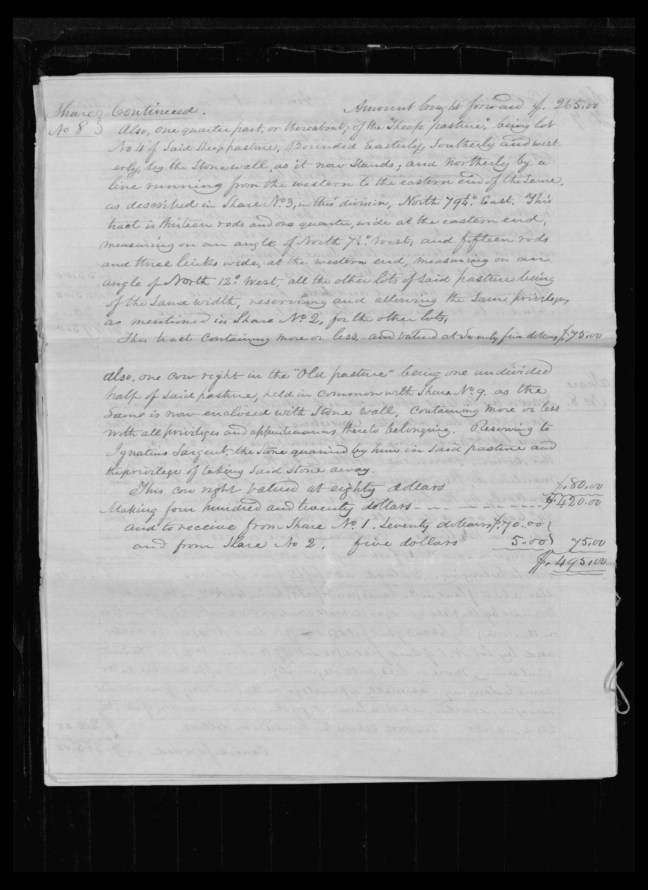 Share } Continued. Amount brought forward $. 265.00
No 8 } Also, one quarter part, or thereabout, of the "Sheep pasture," being lot
No 4 of Said Sheep pasture, Bounded Easterly, Southerly and west
erly, by the Stone wall, as it now Stands, and northerly by a
line running from the western to the eastern end of the Same,
as described in Share No 3, in this division, North 79½° East. This
tract is thirteen rods and one quarter, wide at the eastern end,
measuring on an angle of North 7½° West, and fifteen rods
and three links wide, at the western end, measuring on an
angle of North 12° West, all the other lots of Said pasture being
of the Same width, reserving and allowing the Same privileges,
as mentioned in Share No 2, for the other lots,
This tract Containing more or less, and valued at Seventy five dollars $. 75.00
Also, one Cow right in the "Old pasture" being one undivided
half of Said pasture, held in common with Share No 9. as the
Same is now enclosed with Stone wall, Containing more or less
with all privileges and appurtenances thereto belonging. Reserving to
Ignatius Sargent, the Stone quarried by him in Said pasture and
the privilege of taking Said Stone away.
This Cow right valued at eighty dollars $. 80.00
Making four hundred and twenty dollars - - - - - $. 420.00
and to receive from Share No 1. Seventy dollars $. 70.00 }
and from Share No 2. five dollars 5.00 } 75.00
$. 495.00